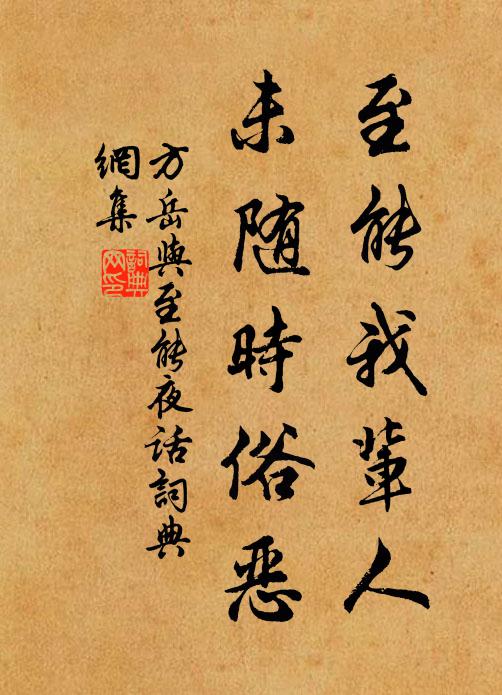 至能我輩人
未随時俗惡
方岳與至能夜话詞典
網集
詞典
网印